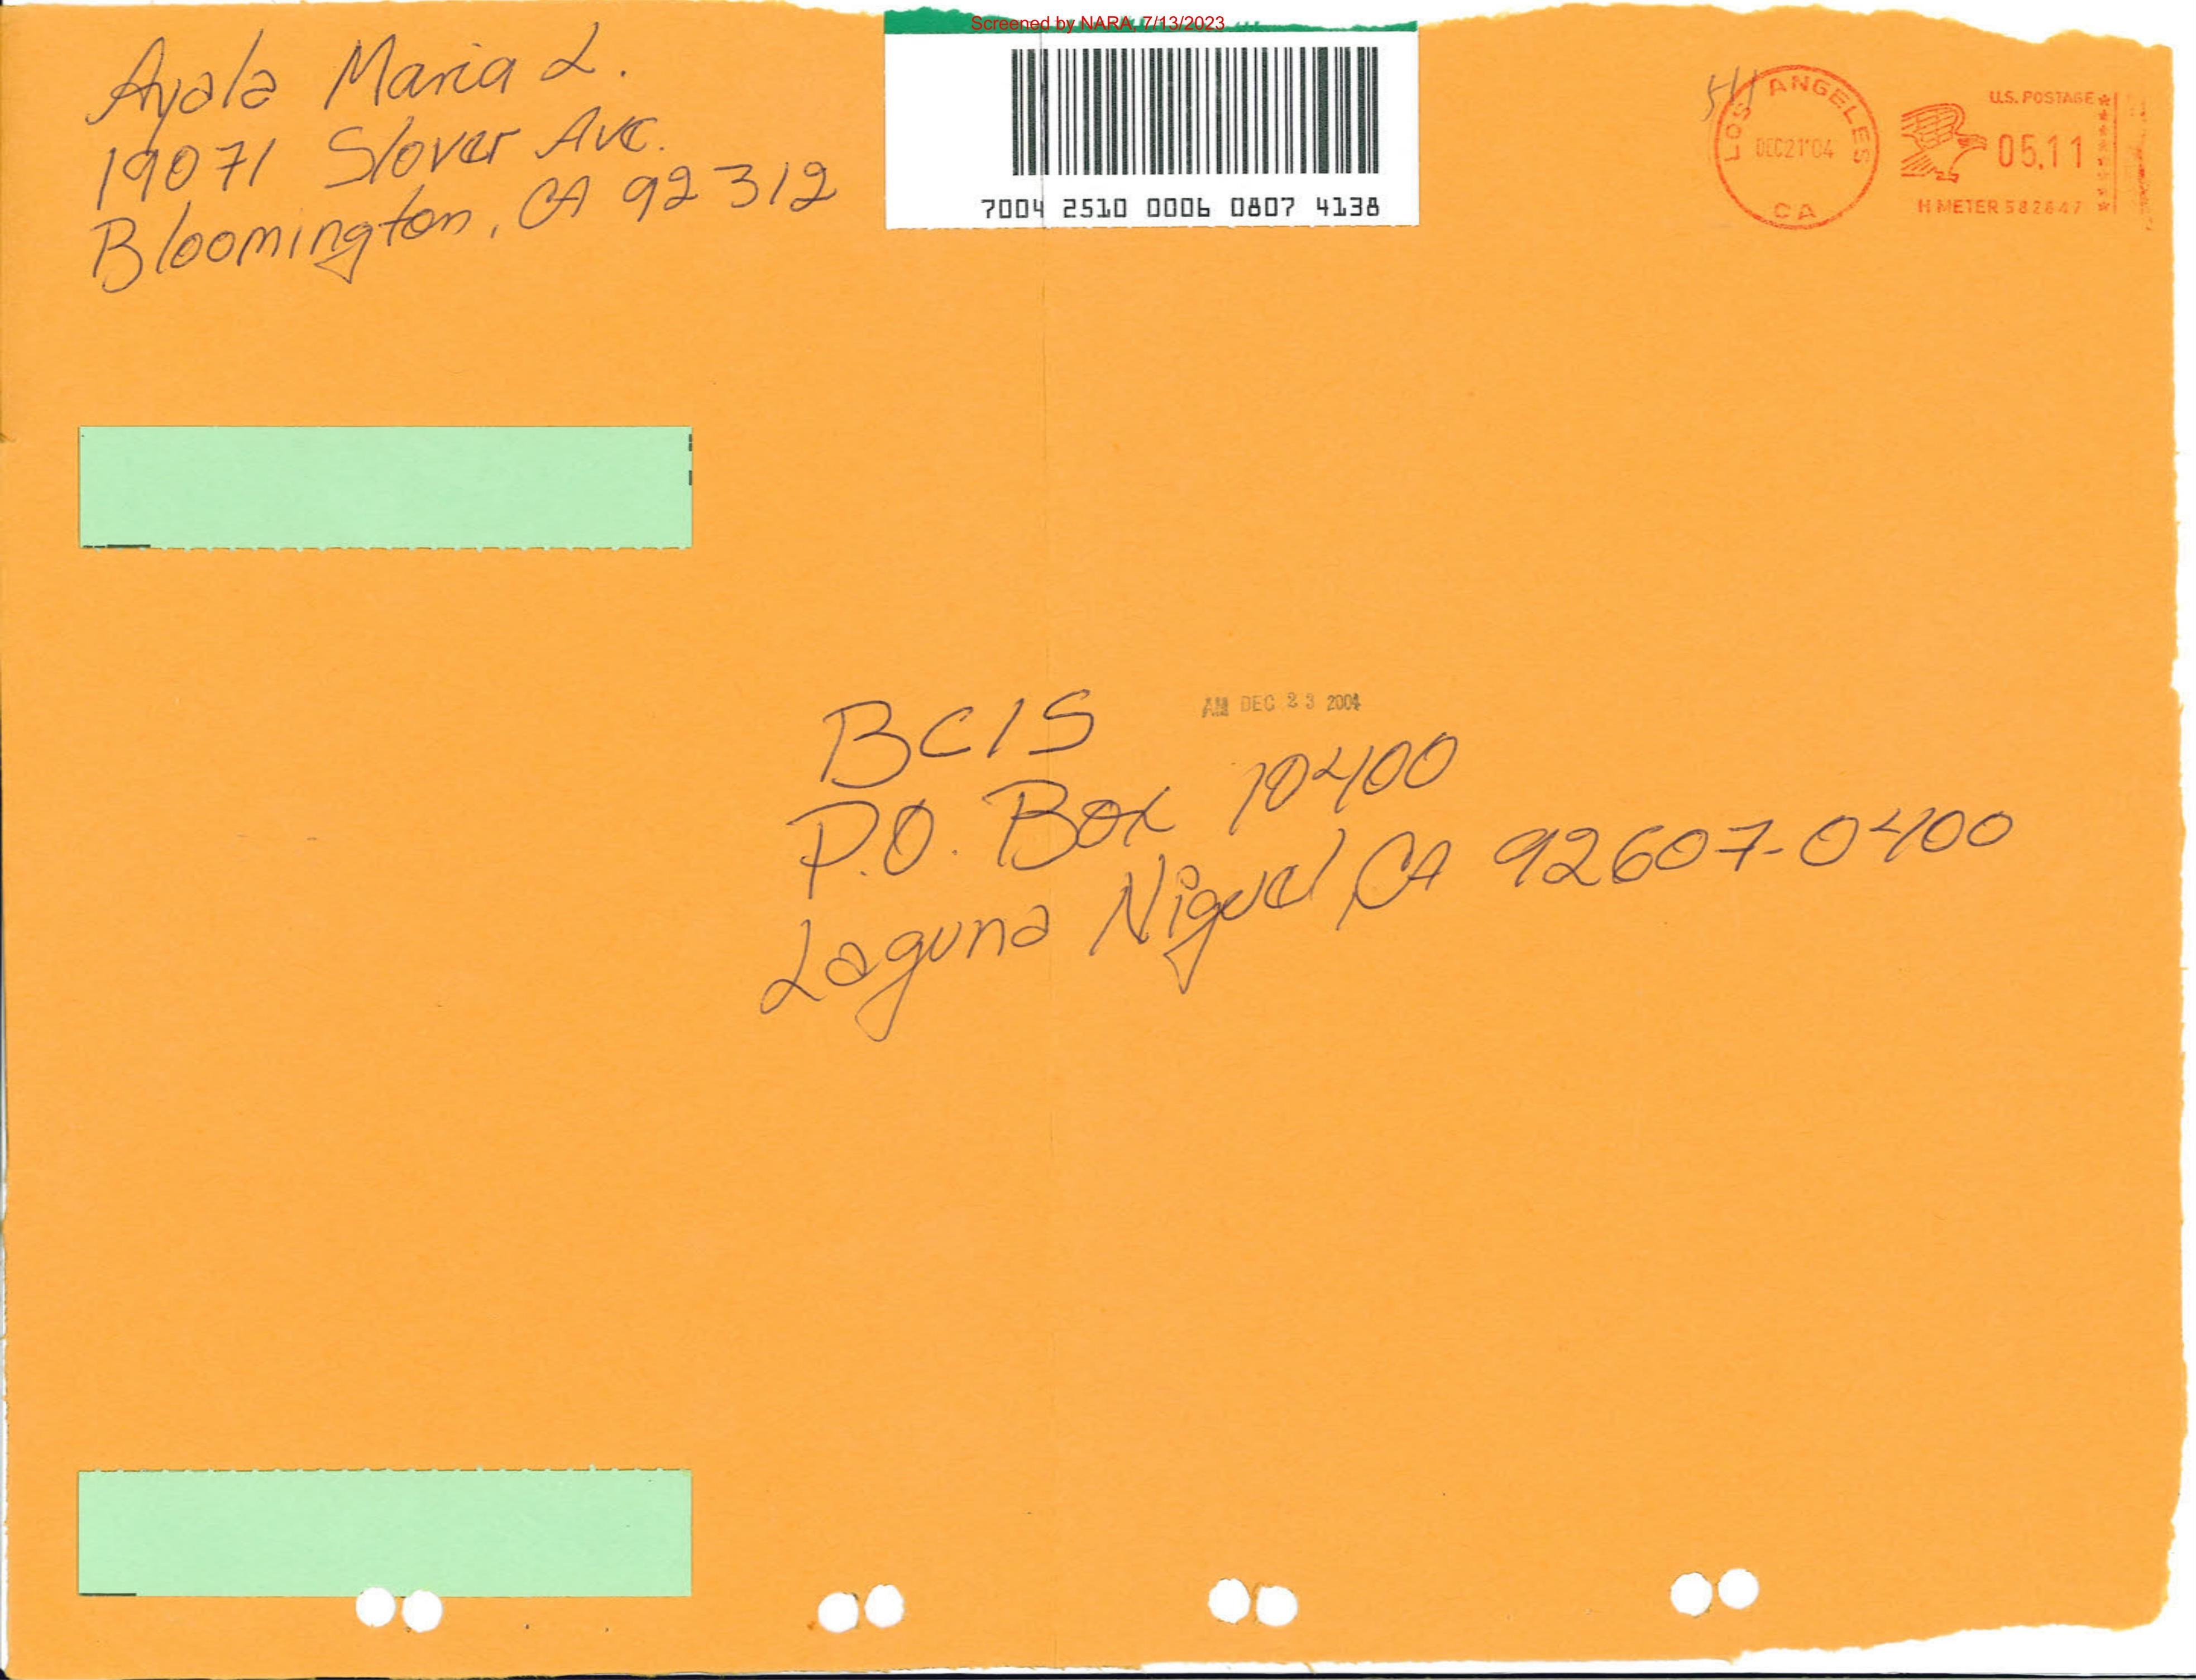 Screened by NARA, 7/13/2023
Ayala Maria L.
19071 Slover Ave.
Bloomington, CA 92312
7004 2510 0006 0807 4138
511
LOS ANGELES
DEC21'04
CA
U.S. POSTAGE
05.11
H METER 582847
AM DEC 23 2004
BCIS
P.O. Box 10400
Laguna Niguel, CA 92607-0400